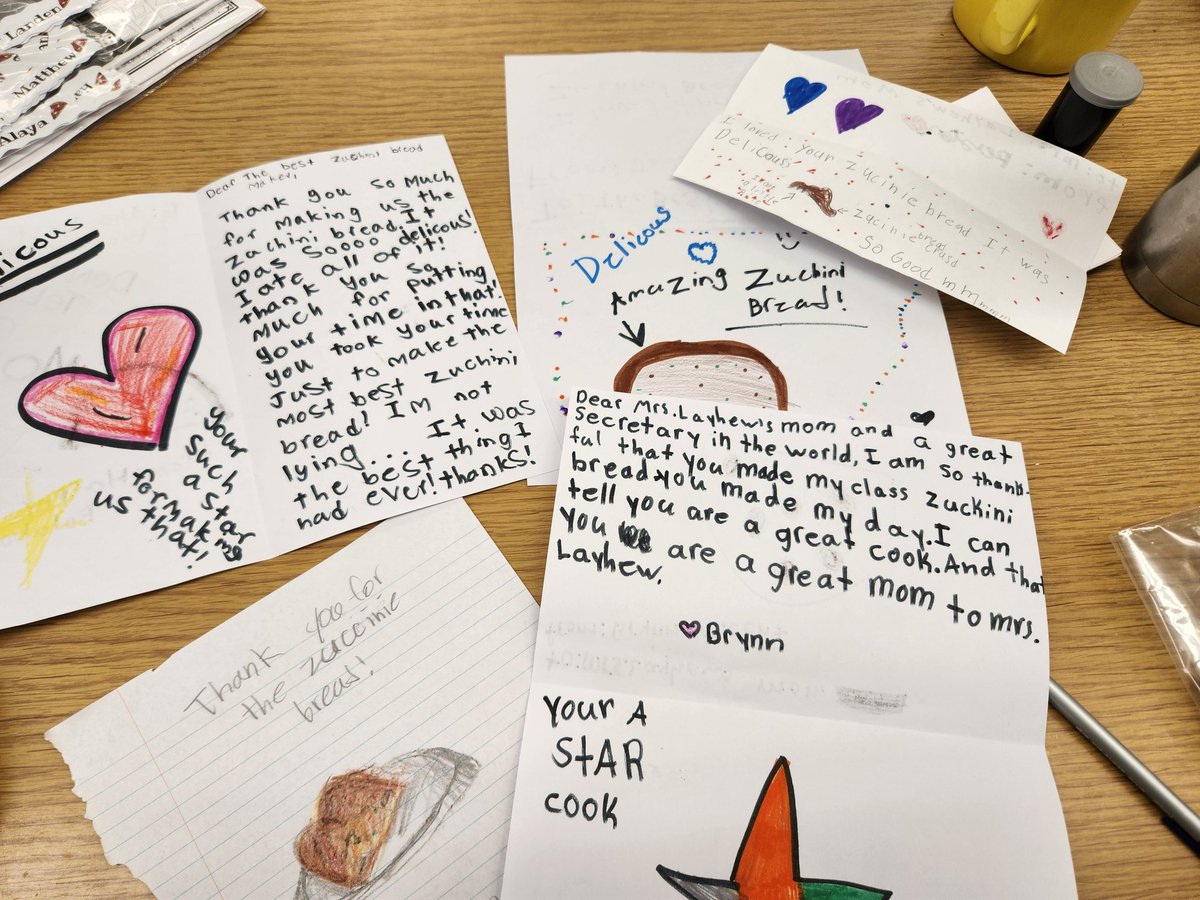 Landen
Matthew
Alaya
Dear The best zuchini bread
Maker,
Thank you so much
for making us the
zuchini bread. It
was soooo delicous!
I ate all of it!
thank you so
much for putting
your time in that!
you took your time
Just to make the
most best zuchini
bread! I'm not
lying... It was
the best thing I
had ever! thanks!
licous
your
such
a star
for making
us that!
Delicous
Amazing Zuchini
Bread!
I loved your zucinie bread It was
Delicousi
zucinie bread
So Good mmmmm
Dear Mrs. Layhew's mom and a great
secretary in the world, I am so thank-
ful that you made my class zuckini
bread. you made my day. I can
tell you are a great cook. And that
you are a great mom to mrs.
Layhew.
Brynn
Your A
STAR
cook
Thank you for
the zuccinie
bread!